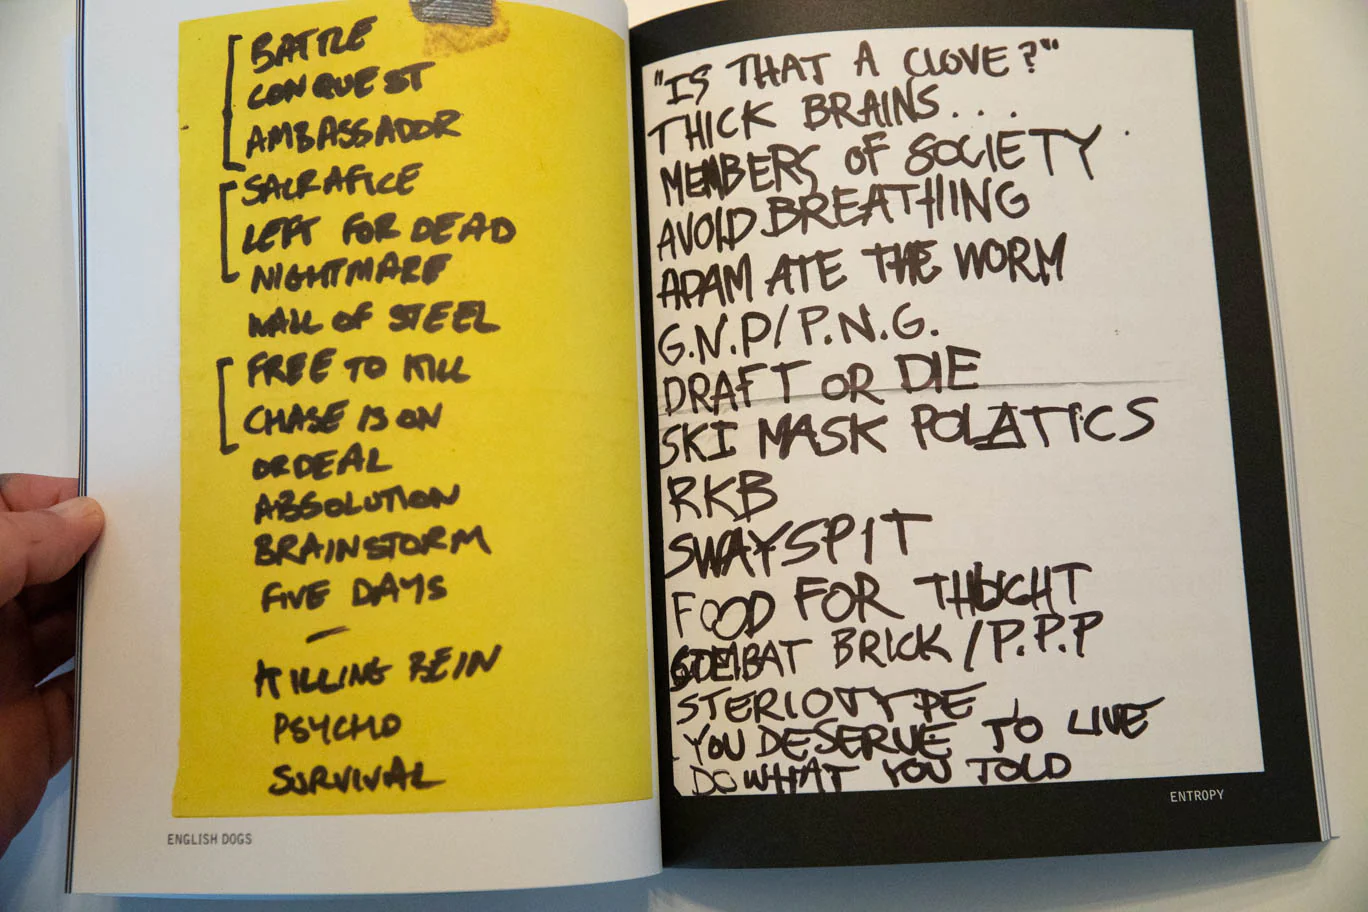 BATTLE
CONQUEST
AMBASSADOR
SACRAFICE
LEFT FOR DEAD
NIGHTMARE
WALL OF STEEL
FREE TO KILL
CHASE IS ON
ORDEAL
ABSOLUTION
BRAINSTORM
FIVE DAYS
—
KILLING BEIN
PSYCHO
SURVIVAL
ENGLISH DOGS
"IS THAT A CLOVE?"
THICK BRAINS...
MEMBERS OF SOCIETY
AVOID BREATHING
ADAM ATE THE WORM
G.N.P/P.N.G.
DRAFT OR DIE
SKI MASK POLATICS
RKB
SWAYSPIT
FOOD FOR THOUGHT
COMBAT BRICK/P.P.P
STERIOTYPE
YOU DESERVE TO LIVE
DO WHAT YOU TOLD
ENTROPY